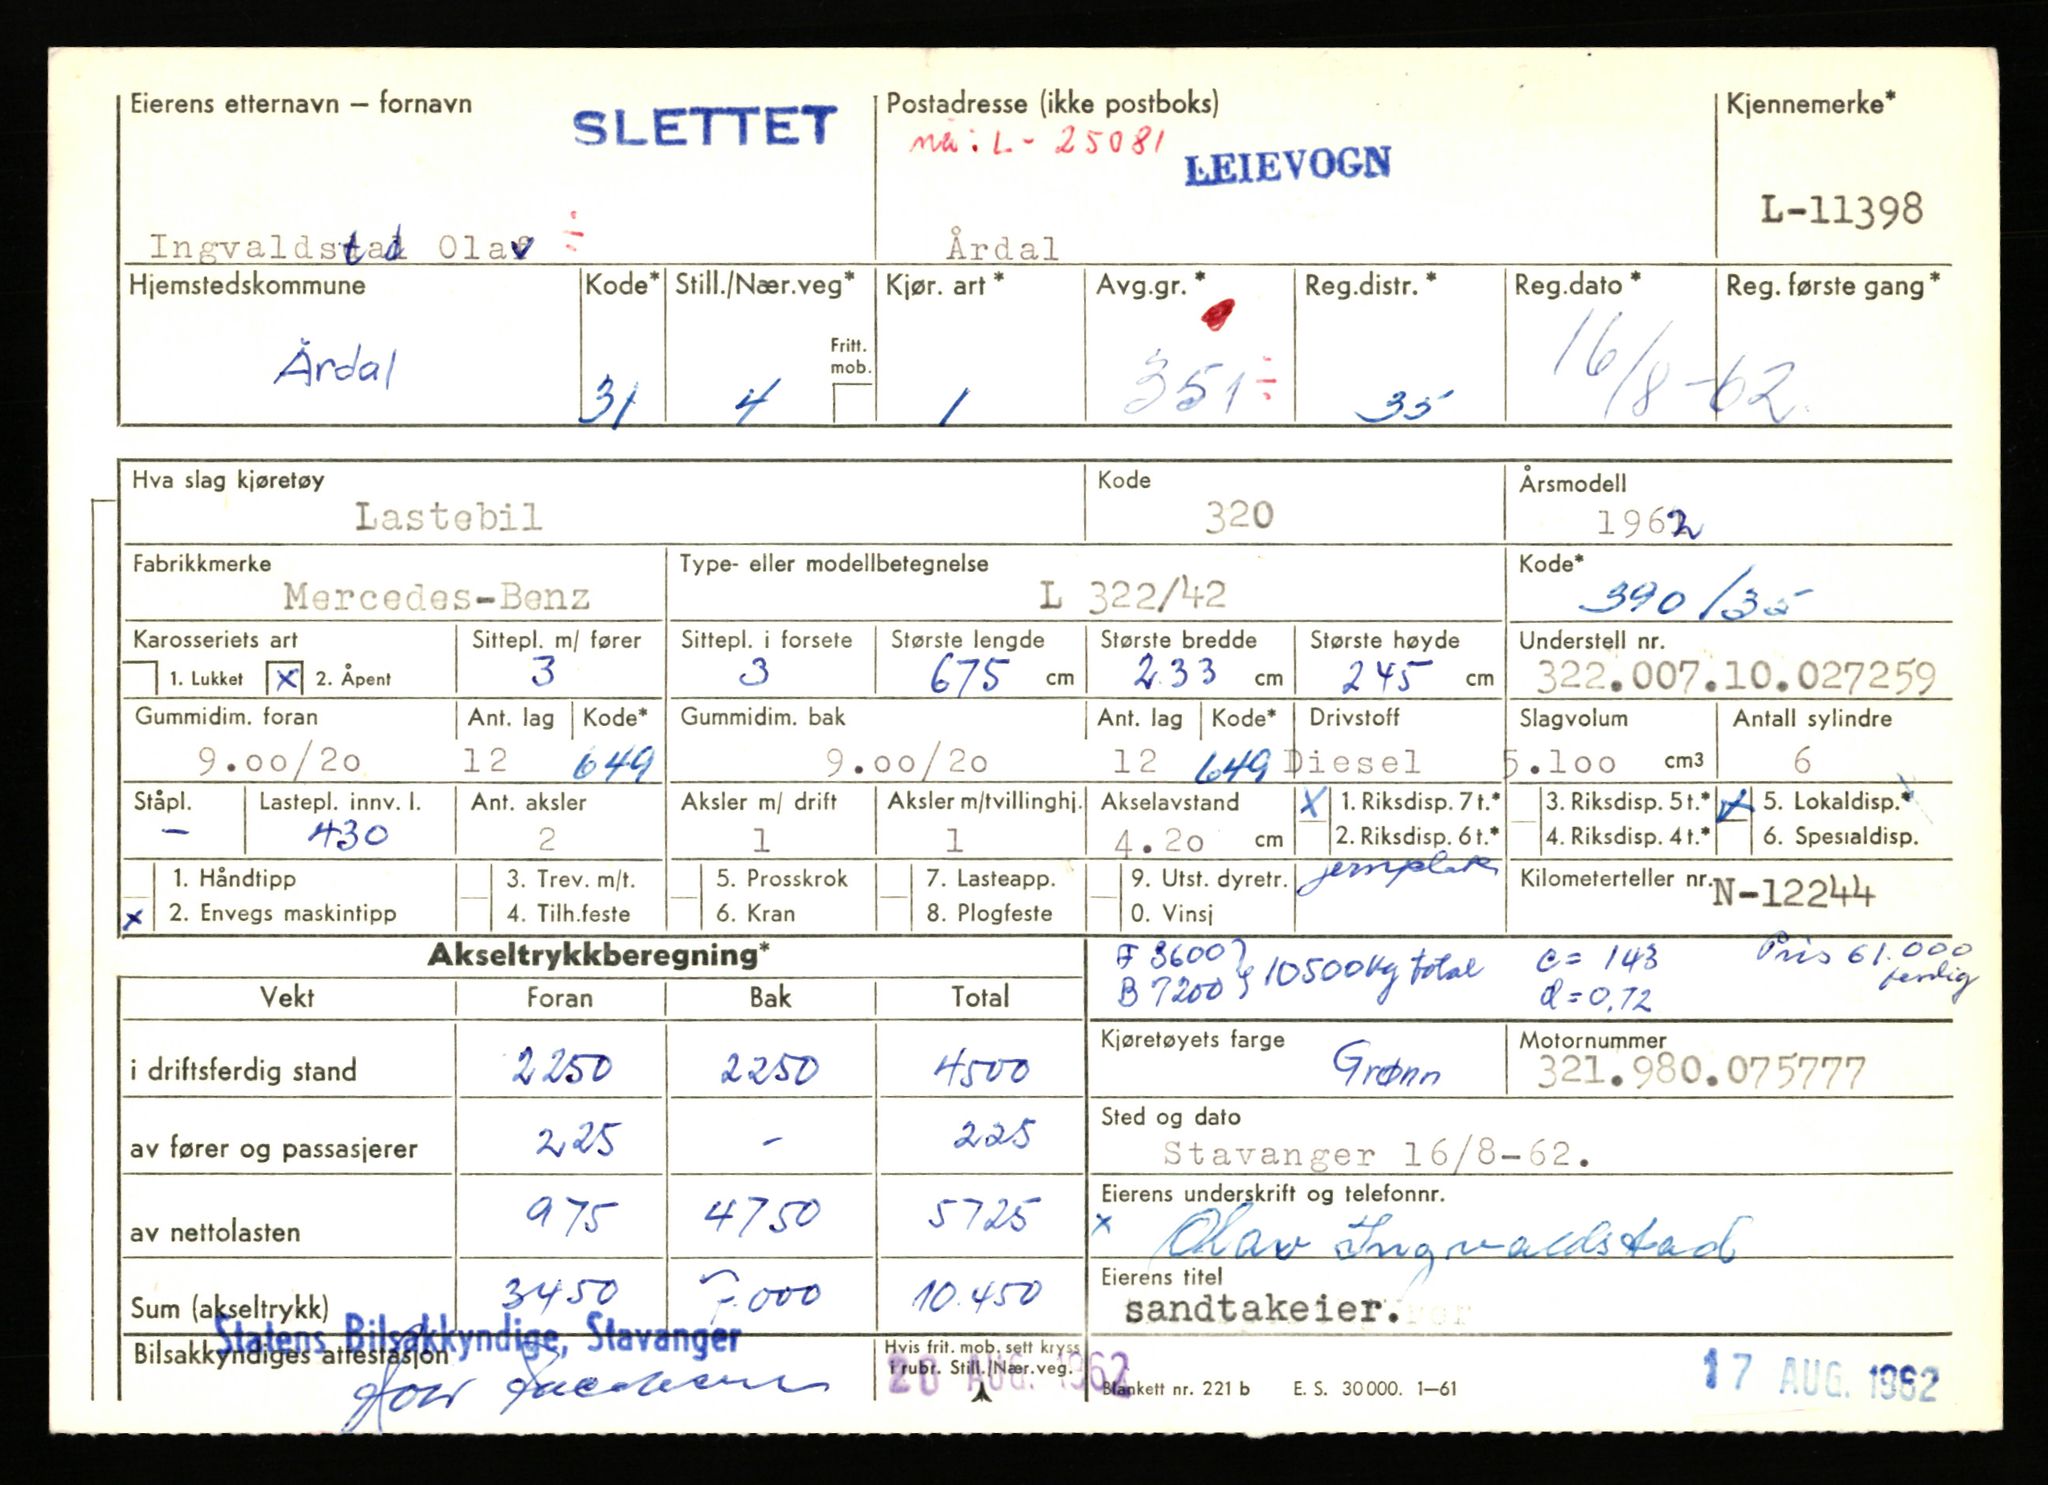 Eierens etternavn – fornavn
SLETTET
Postadresse (ikke postboks)
nå: L- 25081
LEIEVOGN
Kjennemerke*
L-11398
Ingvaldstad Olav
Årdal
Hjemstedskommune Kode* Still./Nær.veg* Kjør. art* Avg.gr.* Reg.distr.* Reg.dato* Reg. første gang*
Fritt. mob.
Årdal 31 4 1 351 35 16/8-62.
Hva slag kjøretøy Kode Årsmodell
Lastebil 320 1962
Fabrikkmerke Type- eller modellbetegnelse Kode*
Mercedes-Benz L 322/42 390/35
Karosseriets art Sittepl. m/ fører Sittepl. i forsete Største lengde Største bredde Største høyde Understell nr.
1. Lukket x 2. Åpent 3 3 675 cm 233 cm 245 cm 322.007.10.027259
Gummidim. foran Ant. lag Kode* Gummidim. bak Ant. lag Kode* Drivstoff Slagvolum Antall sylindre
9.00/20 12 649 9.00/20 12 649 Diesel 5.100 cm3 6
Ståpl. Lastepl. innv. l. Ant. aksler Aksler m/ drift Aksler m/tvillinghj. Akselavstand x 1. Riksdisp. 7 t.* 3. Riksdisp. 5 t.* x 5. Lokaldisp.*
– 430 2 1 1 4.20 cm 2. Riksdisp. 6 t.* 4. Riksdisp. 4 t.* 6. Spesialdisp.
1. Håndtipp 3. Trev. m/t. 5. Prosskrok 7. Lasteapp. 9. Utst. dyretr. Kilometerteller nr. N-12244
x 2. Envegs maskintipp 4. Tilh.feste 6. Kran 8. Plogfeste 0. Vinsj
Akseltrykkberegning*
F 3600 } 10500 kg total c = 143 Pris 61.000
B 7200 d = 0,72 ferdig
Vekt Foran Bak Total
i driftsferdig stand 2250 2250 4500
Kjøretøyets farge Grønn Motornummer 321.980.075777
av fører og passasjerer 225 – 225
Sted og dato
Stavanger 16/8-62.
av nettolasten 975 4750 5725
Eierens underskrift og telefonnr.
x Olav Ingvaldstad
Sum (akseltrykk) 3450 7.000 10.450
Eierens titel
sandtakeier.
Statens Bilsakkyndige, Stavanger
Bilsakkyndiges attestasjon
Hvis frit. mob. sett kryss
i rubr. Still./Nær.veg.
20 AUG. 1962
Blankett nr. 221 b E. S. 30 000. 1–61
17 AUG. 1962